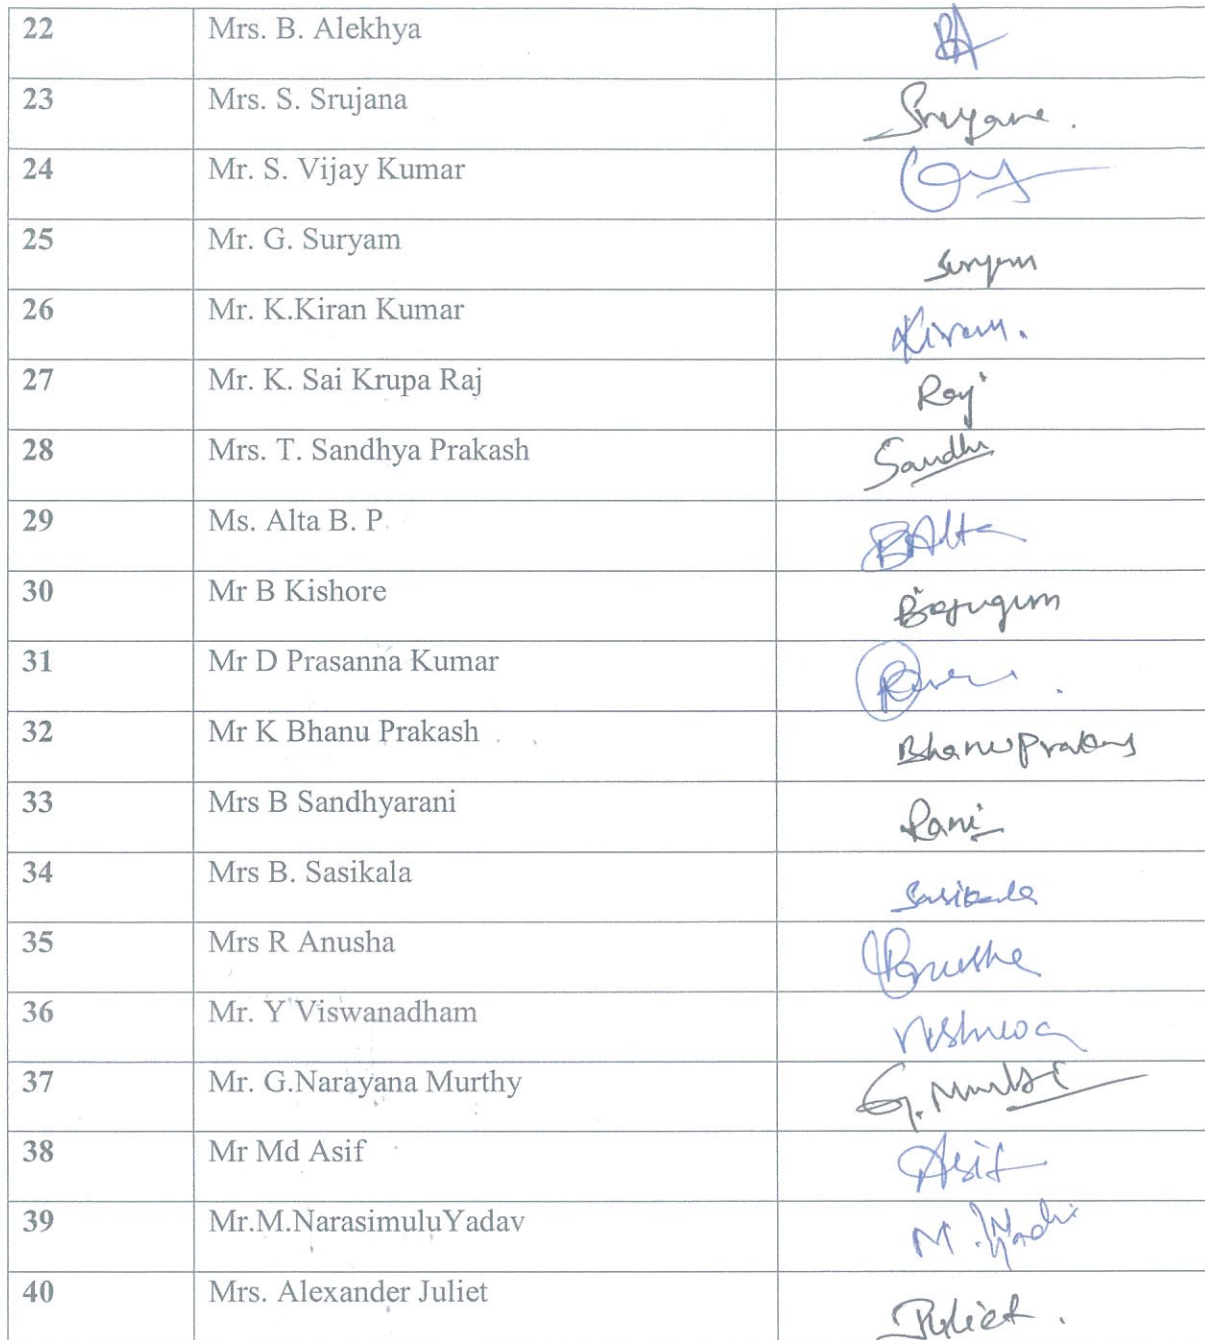 22 Mrs. B. Alekhya BA
23 Mrs. S. Srujana Srujana.
24 Mr. S. Vijay Kumar
25 Mr. G. Suryam Suryam
26 Mr. K.Kiran Kumar Kiran.
27 Mr. K. Sai Krupa Raj Raj
28 Mrs. T. Sandhya Prakash Sandhu
29 Ms. Alta B. P. BAlta
30 Mr B Kishore
31 Mr D Prasanna Kumar
32 Mr K Bhanu Prakash Bhanu Prakash
33 Mrs B Sandhyarani Rani
34 Mrs B. Sasikala Sasikala
35 Mrs R Anusha Anusha
36 Mr. Y Viswanadham
37 Mr. G.Narayana Murthy
38 Mr Md Asif Asif
39 Mr.M.NarasimuluYadav
40 Mrs. Alexander Juliet Juliet.